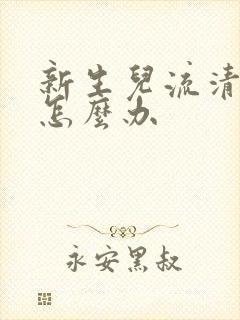 新生兒流清
怎麼办
永安黑叔